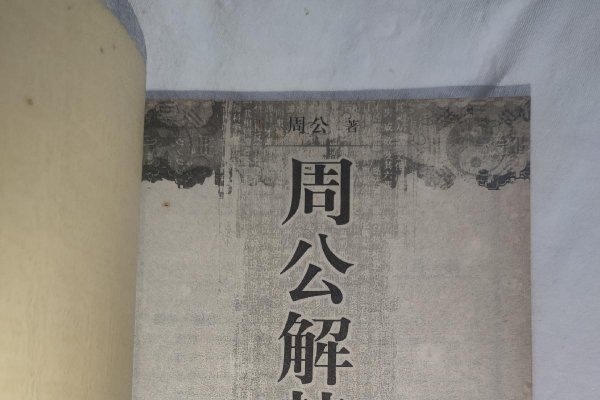 周公 著
周公解